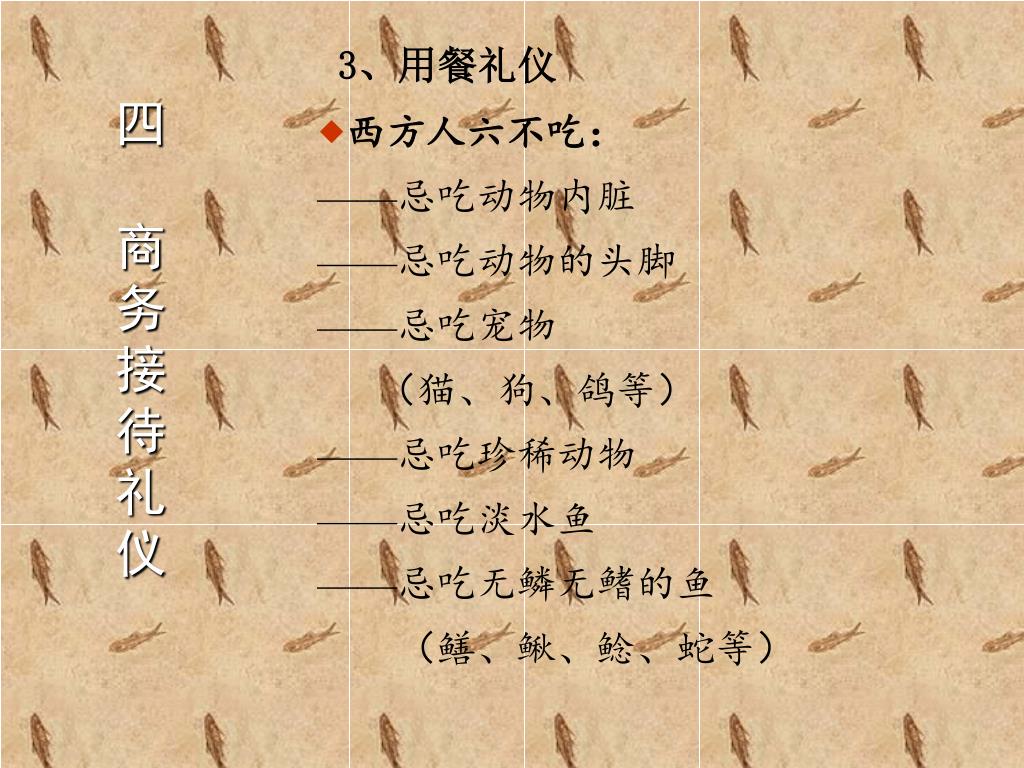 四 商务接待礼仪
3、用餐礼仪
西方人六不吃：
——忌吃动物内脏
——忌吃动物的头脚
——忌吃宠物
（猫、狗、鸽等）
——忌吃珍稀动物
——忌吃淡水鱼
——忌吃无鳞无鳍的鱼
（鳝、鳅、鲶、蛇等）